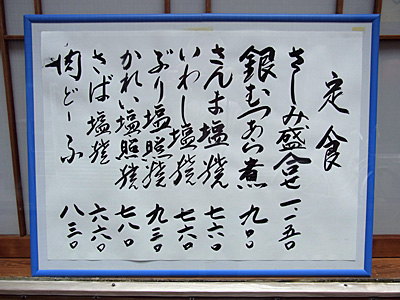 定食
さしみ盛合せ 一、一五〇
銀むつあら煮 九〇〇
さんま塩焼 七六〇
いわし塩焼 七六〇
ぶり塩照焼 九三〇
かれい塩照焼 七八〇
さば塩焼 六六〇
肉どーふ 八三〇